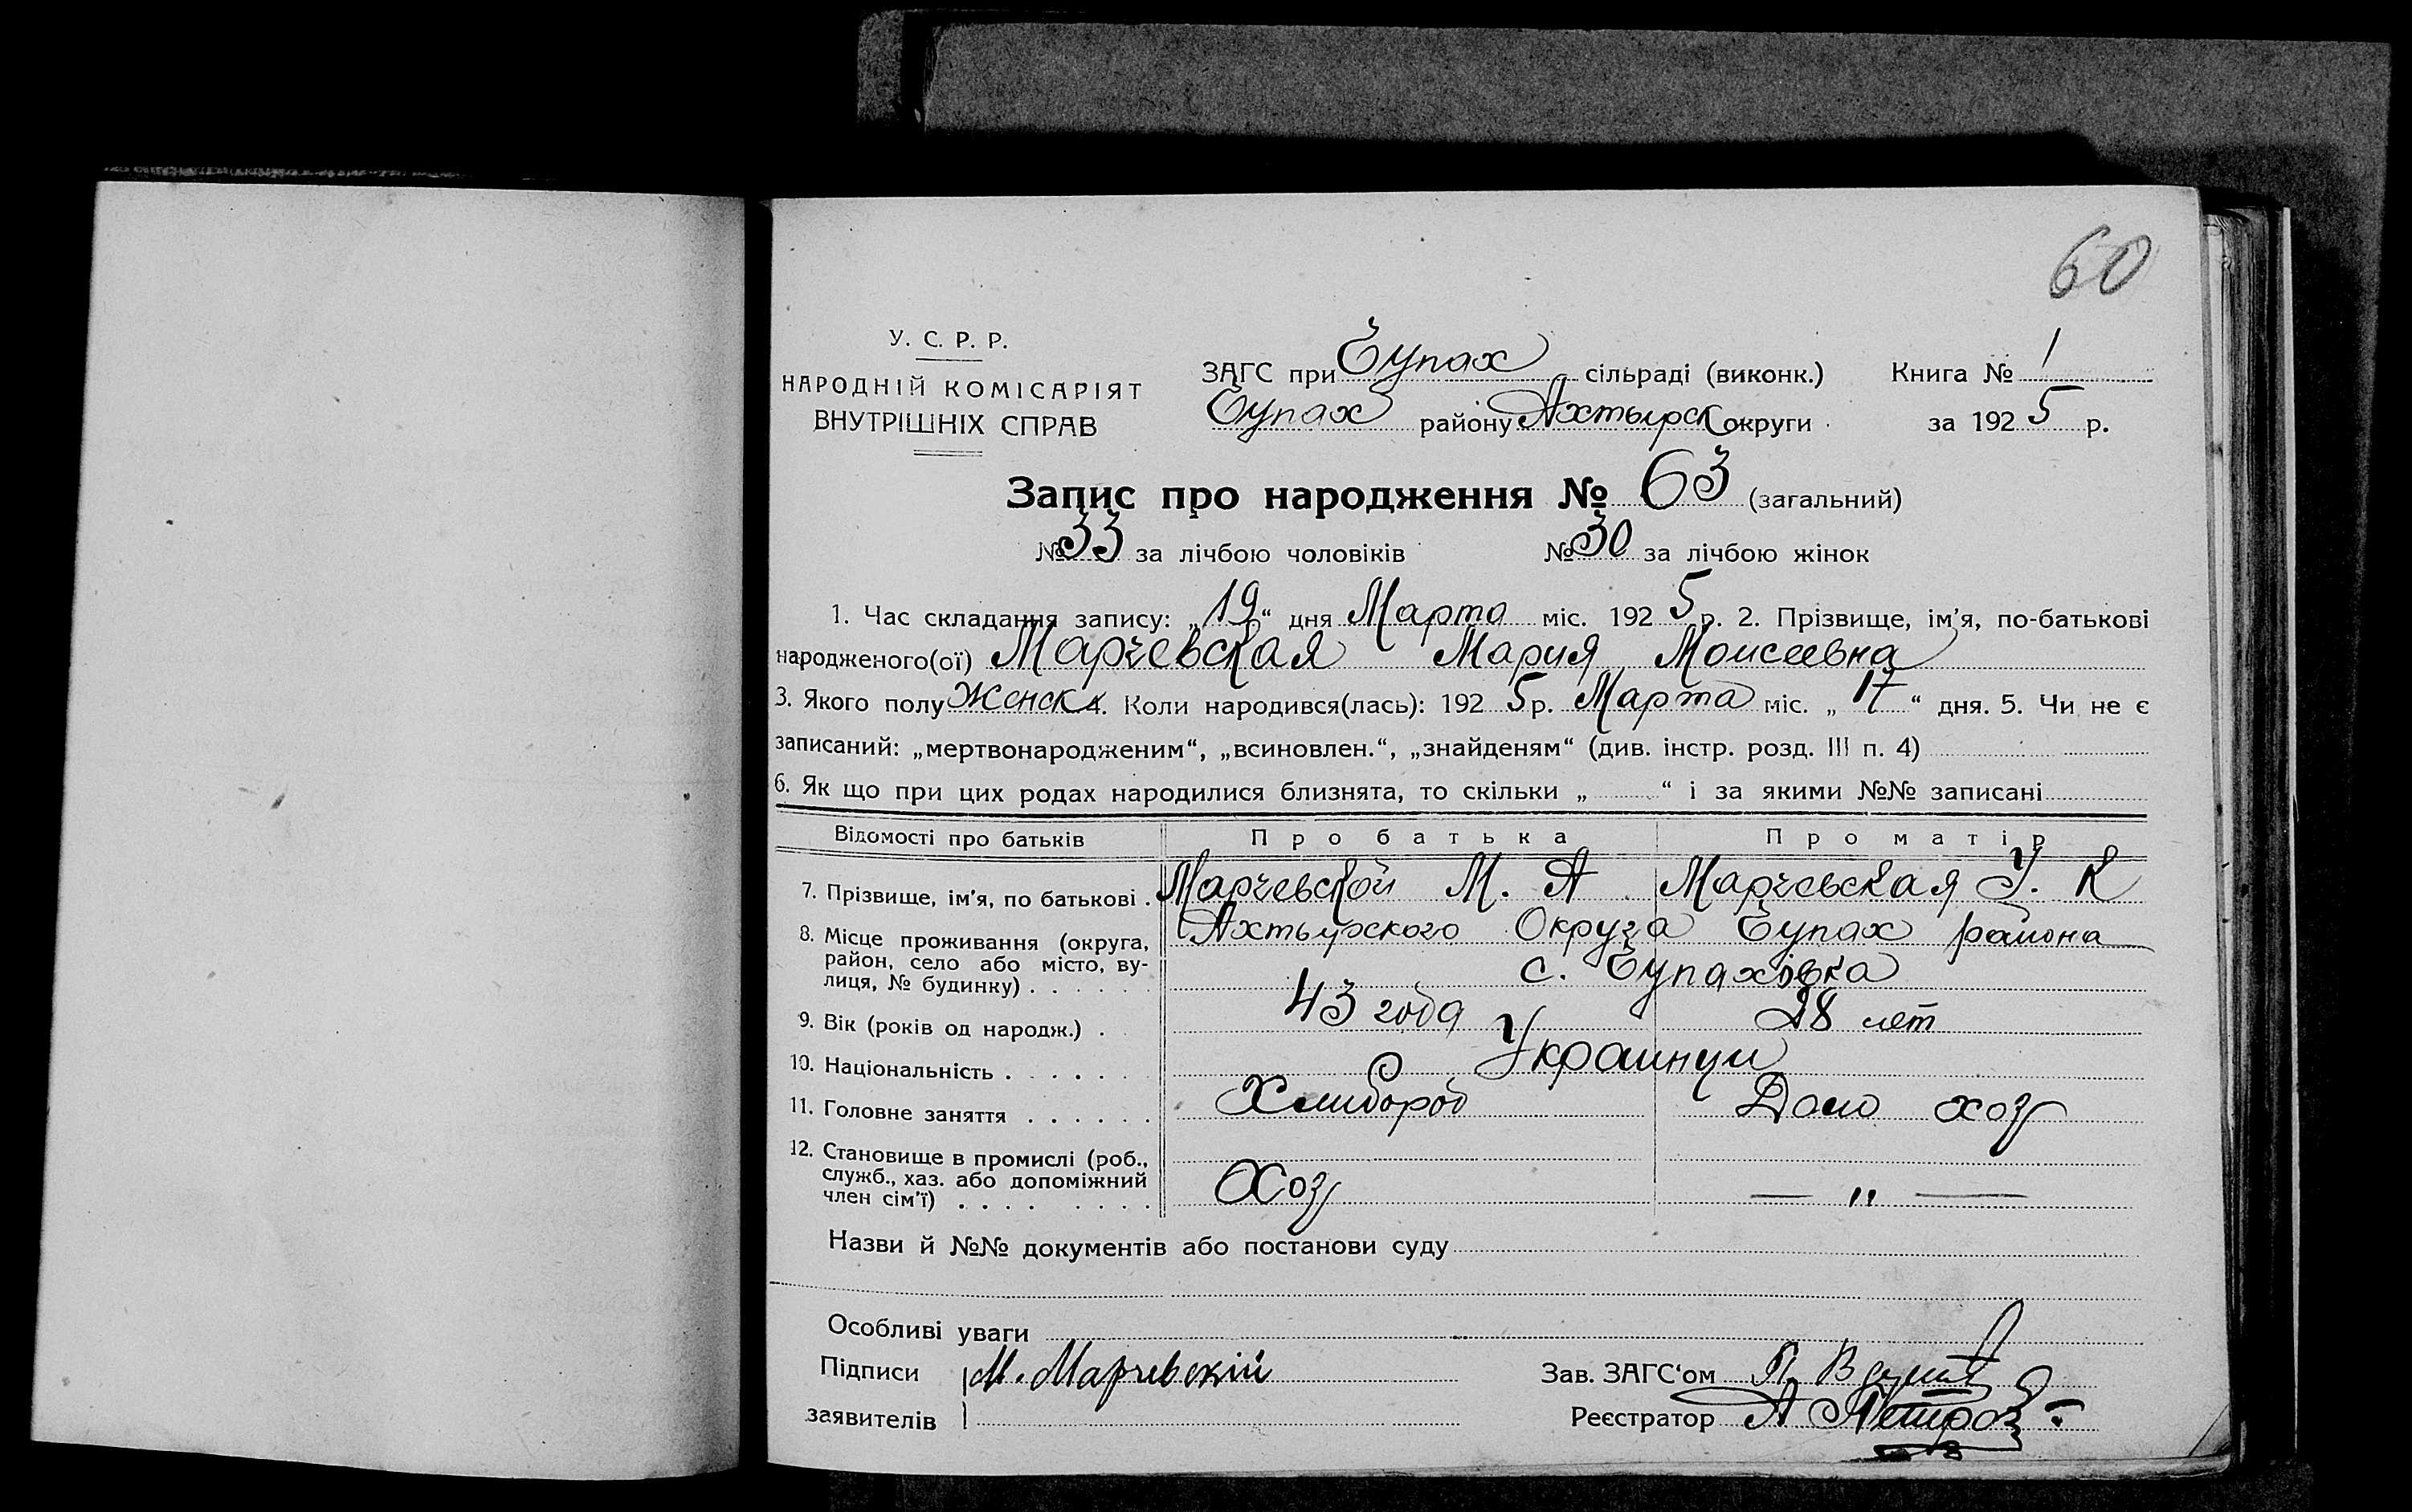 60
У. С. Р. Р.
НАРОДНІЙ КОМІСАРІЯТ
ВНУТРІШНІХ СПРАВ
ЗАГС при Чупах сільраді (виконк.) Книга № 1
Чупах району Ахтырск округи за 1925 р.
Запис про народження № 63 (загальний)
№ 33 за лічбою чоловіків № 30 за лічбою жінок
1. Час складання запису: „19“ дня Марта міс. 1925 р. 2. Прізвище, ім’я, по-батькові
народженого(ої) Марчевская Мария Моисеевна
3. Якого полу Женск 4. Коли народився(лась): 1925 р. Марта міс. „17“ дня. 5. Чи не є
записаний: „мертвонародженим“, „всиновлен.“, „знайденям“ (див. інстр. розд. III п. 4)
6. Як що при цих родах народилися близнята, то скільки „ “ і за якими №№ записані
Відомості про батьків Про батька Про матір
7. Прізвище, ім’я, по батькові . Марчевской М. А Марчевская У. К
8. Місце проживання (округа, Ахтырского Округа Чупах района
район, село або місто, ву-
лиця, № будинку) . . . . . с. Чупахівка
9. Вік (років од народж.) . 43 года 28 лет
10. Національність . . . . . . Украинци
11. Головне заняття . . . . . . Хлибороб Дом хоз
12. Становище в промислі (роб.,
служб., хаз. або допоміжний
член сім’ї) . . . . . . . . Хоз — „ —
Назви й №№ документів або постанови суду
Особливі уваги
Підписи М. Марчевскій Зав. ЗАГС‘ом П.
заявителів Реєстратор А Петров